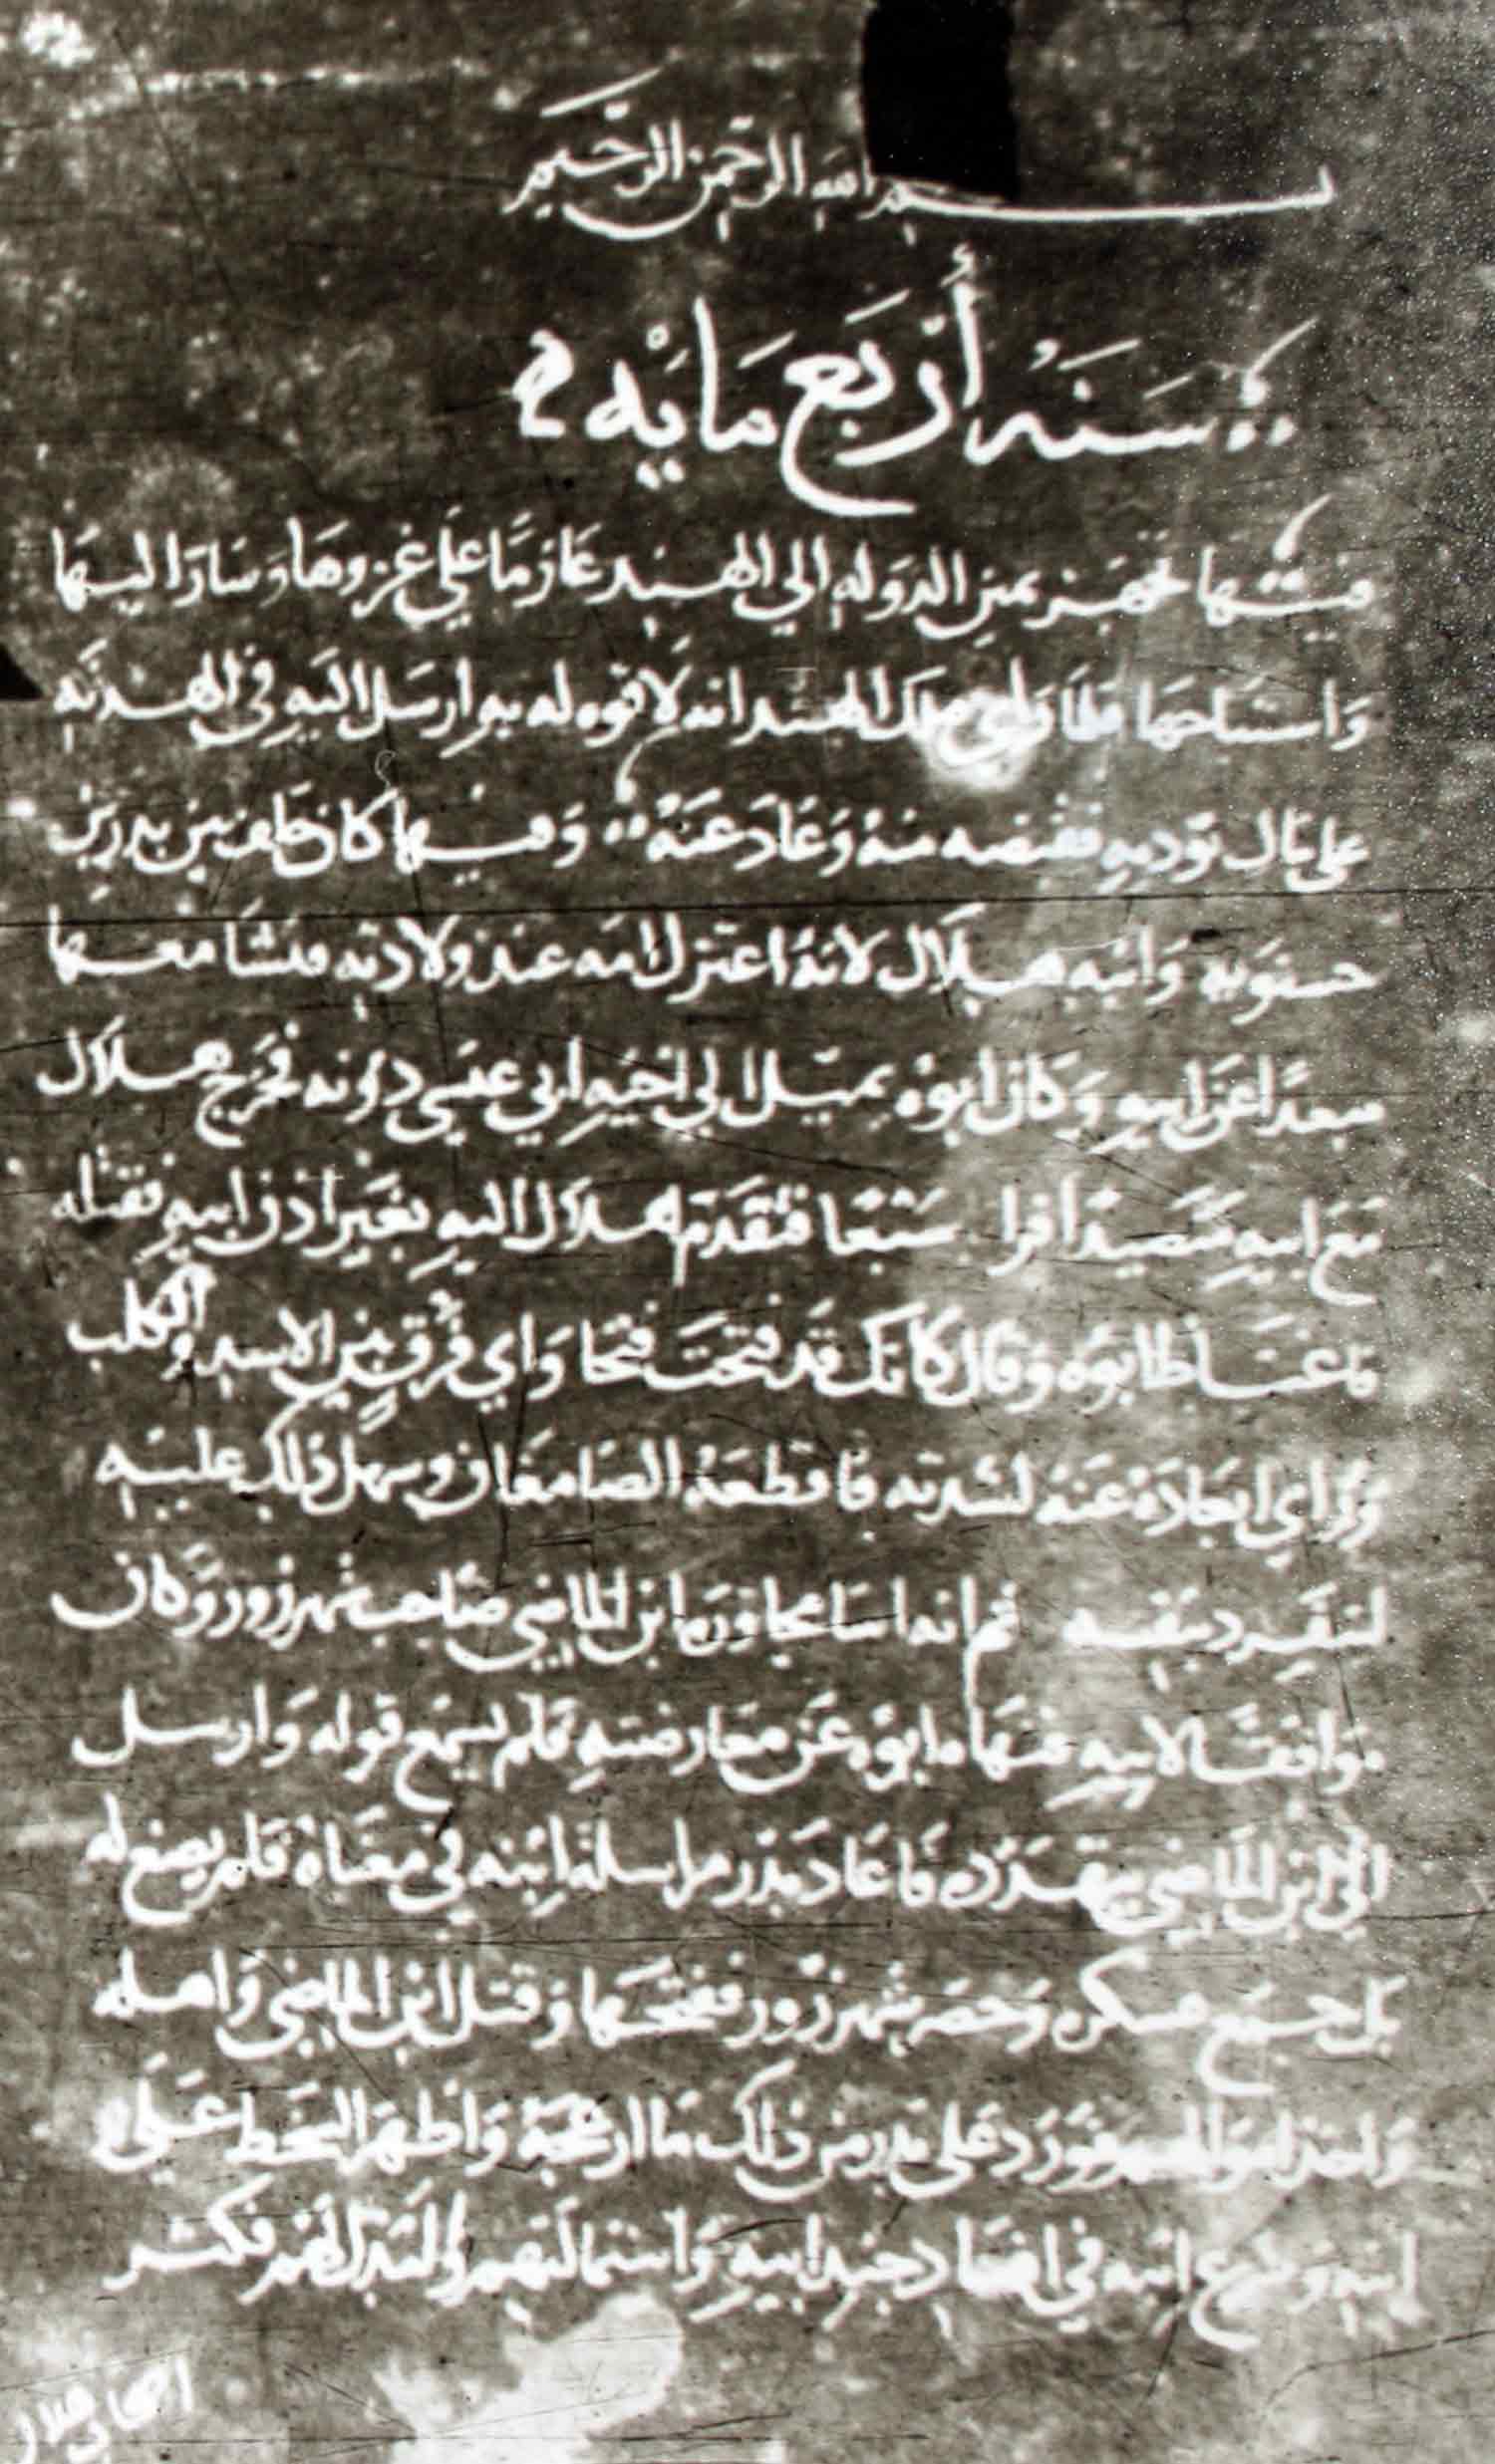 بسم الله الرحمن الرحيم
سَنَة أَربَع مَايه
فيها تجهز يمين الدوله الي الهند عازمًا علي غزوها وسار اليها
واستباحها فلما راي ملك الهند انه لا قوه له به ارسل اليه في الهدنه
على مال يوديه فقبضه منه وعاد عنه وفيها كان خلف بين بدر بن
حسنويه وابنه هلال لانه اعتزل امه عند ولادته فنشا معها
مبعدًا عن ابيه وكان ابوه يميل الي اخيه ابي عيسي دونه فخرج هلال
مع ابيه متصيدا فرا سبعا فتقدم هلال اليه بغير اذن ابيه فقتله
فاغتاظ ابوه وقال كانك قد فتحت فتحا واي فرق بين الاسد والكلب
وراي ابعاده عنه لشدته فاقطعه الصامغان وسهل ذلك عليه
لينفرد بنفسه ثم انه اسا مجاورة ابن الماضي صاحب شهرزور وكان
موافقا لابيه فنهاه ابوه عن معارضته فلم يسمع قوله وارسل
الي ابن الماضي يتهدده فاعاد بدر مراسلة ابنه في معناه فلم يصغ له
بل جمع عسكره وحصر شهرزور ففتحها وقتل ابن الماضي واهله
واخذ اموالهم فورد على بدر من ذلك ما ازعجه واظهر السخط على
ابنه وشرع ابنه في افساد جند ابيه واستمالتهم والبذل لهم فكثر
اصحاب هلال